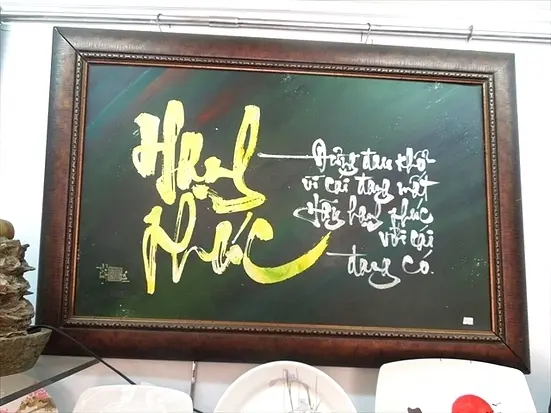 Hạnh
Phúc
Đừng đau khổ
vì cái đang mất
Hãy hạnh phúc
với cái
đang có.